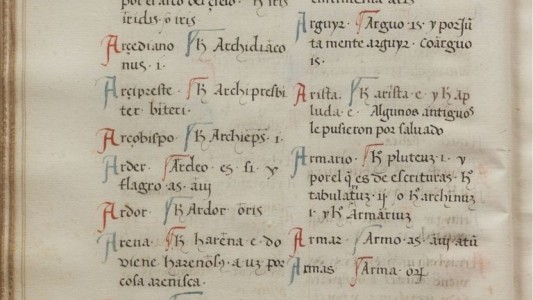 por el arco del çielo. h̃ iris
iridis o iris
Arçediano. h̃ Archidiaco
nus. i.
Arçipreste. h̃ Archipresbi
ter. biteri.
Arçobispo. h̃ Archiep̃s. i.
Arder. Ardeo. es. si. y
flagro as. aui
Ardor. h̃ Ardor. oris
Arena. h̃ harena. e. do
viene harenosus. a. uz por
cosa arenisca.
Arguyr. Arguo. is. y por Jũ
ta mente arguyr. coarguo
is.
Arista. h̃ arista. e. y h̃ ap
luda. e. Algunos antiguos
le pusieron por saluado
Armario. h̃ pluteuz. i. y
por el q̃ es de escrituras. h̃
tabulatuz. ij. o h̃ archiuuz
i. y h̃ Armariuz
Armar. Armo. as. aui. atũ
Armas. Arma. orꝝ